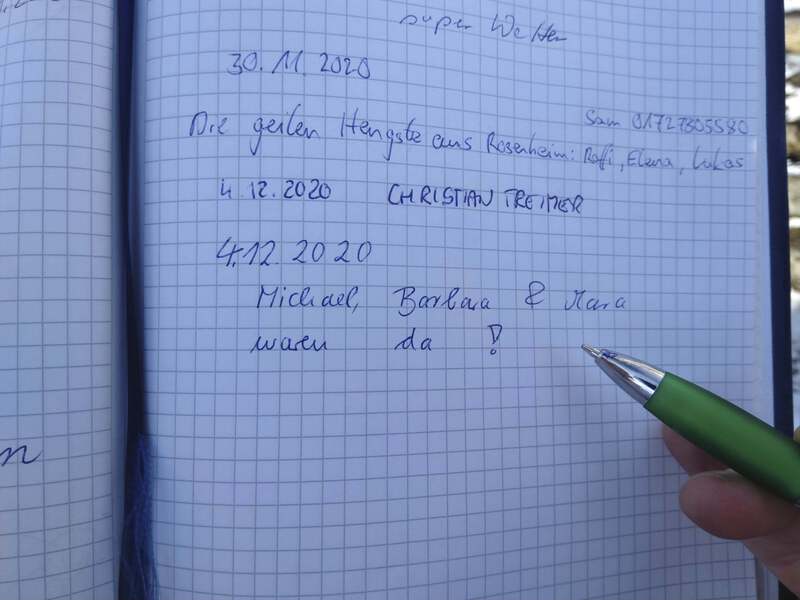 super Wetter
30.11.2020
Sam 01727305580
Die geilen Hengste aus Rosenheim: Raffi, Elena, Lukas
4.12.2020 CHRISTIAN TREIMER
4.12.2020
Michael, Barbara & Mara
waren da!
n